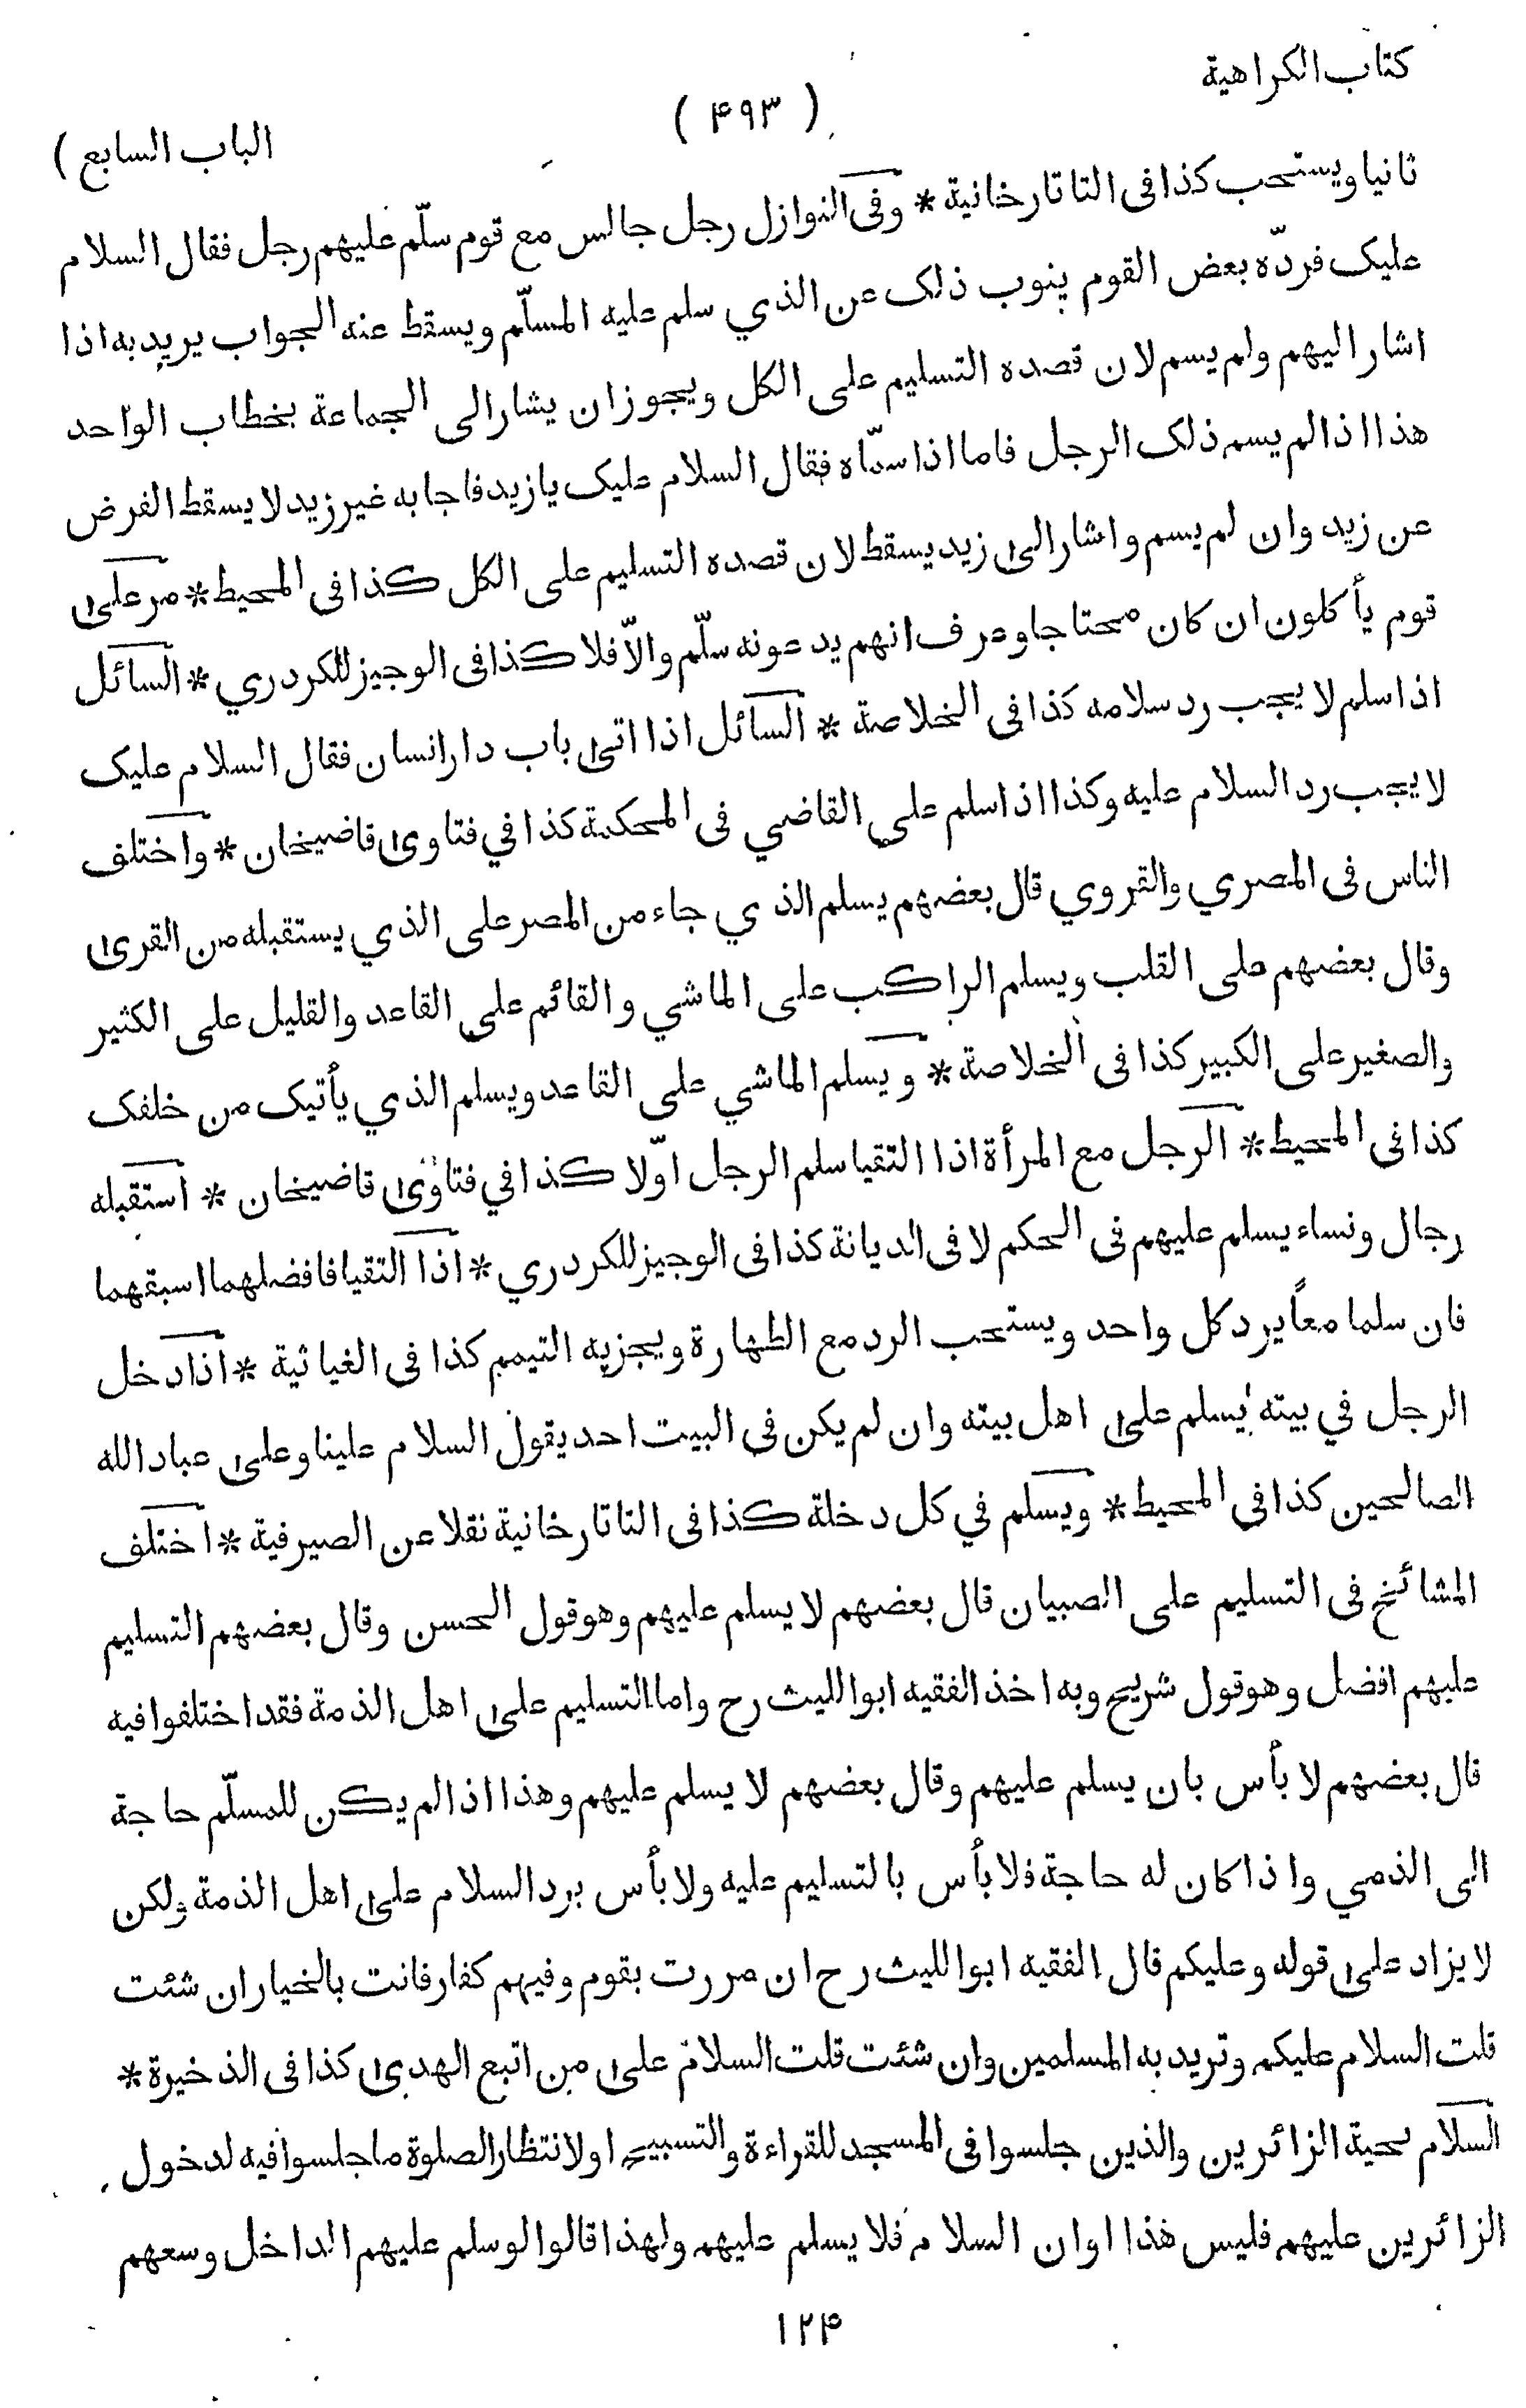 كتاب الكراهية
( ۴۹۳ )
الباب السابع )
ثانيا ويستحب كذا فى التاتارخانية * وفى النوازل رجل جالس مع قوم سلّم عليهم رجل فقال السلام
عليك فردّه بعض القوم ينوب ذلك عن الذي سلم عليه المسلّم ويسقط عنه الجواب يريد به اذا
اشار اليهم ولم يسم لان قصده التسليم على الكل ويجوز ان يشار الى الجماعة بخطاب الواحد
هذا اذا لم يسم ذلك الرجل فاما اذا سمّاه فقال السلام عليك يا زيد فاجابه غير زيد لا يسقط الفرض
عن زيد وان لم يسم واشار الى زيد يسقط لان قصده التسليم على الكل كذا فى المحيط * مر على
قوم يأكلون ان كان محتاجا وعرف انهم يدعونه سلّم والّا فلا كذا فى الوجيز للكردري * السائل
اذا سلم لا يجب رد سلامه كذا فى الخلاصة * السائل اذا اتى باب دار انسان فقال السلام عليك
لا يجب رد السلام عليه وكذا اذا سلم على القاضي فى المحكمة كذا في فتاوى قاضيخان * واختلف
الناس فى المصري والقروي قال بعضهم يسلم الذي جاء من المصر على الذي يستقبله من القرى
وقال بعضهم على القلب ويسلم الراكب على الماشي والقائم على القاعد والقليل على الكثير
والصغير على الكبير كذا فى الخلاصة * ويسلم الماشي على القاعد ويسلم الذي يأتيك من خلفك
كذا فى المحيط * الرجل مع المرأة اذا التقيا سلم الرجل اوّلا كذا في فتاوى قاضيخان * استقبله
رجال ونساء يسلم عليهم فى الحكم لا فى الديانة كذا فى الوجيز للكردري * اذا التقيا فافضلهما اسبقهما
فان سلما معاً يرد كل واحد ويستحب الرد مع الطهارة ويجزيه التيمم كذا فى الغياثية * اذا دخل
الرجل في بيته يسلم على اهل بيته وان لم يكن فى البيت احد يقول السلام علينا وعلى عباد الله
الصالحين كذا فى المحيط * ويسلم في كل دخلة كذا فى التاتارخانية نقلا عن الصيرفية * اختلف
المشائخ فى التسليم على الصبيان قال بعضهم لا يسلم عليهم وهو قول الحسن وقال بعضهم التسليم
عليهم افضل وهو قول شريح وبه اخذ الفقيه ابو الليث رح واما التسليم على اهل الذمة فقد اختلفوا فيه
قال بعضهم لا بأس بان يسلم عليهم وقال بعضهم لا يسلم عليهم وهذا اذا لم يكن للمسلّم حاجة
الى الذمي واذا كان له حاجة فلا بأس بالتسليم عليه ولا بأس برد السلام على اهل الذمة ولكن
لا يزاد على قوله وعليكم قال الفقيه ابو الليث رح ان مررت بقوم وفيهم كفار فانت بالخيار ان شئت
قلت السلام عليكم وتريد به المسلمين وان شئت قلت السلام على من اتبع الهدى كذا فى الذخيرة *
السلام تحية الزائرين والذين جلسوا فى المسجد للقراءة والتسبيح او لانتظار الصلوة ما جلسوا فيه لدخول
الزائرين عليهم فليس هذا اوان السلام فلا يسلم عليهم ولهذا قالوا لو سلم عليهم الداخل وسعهم
۱۲۴